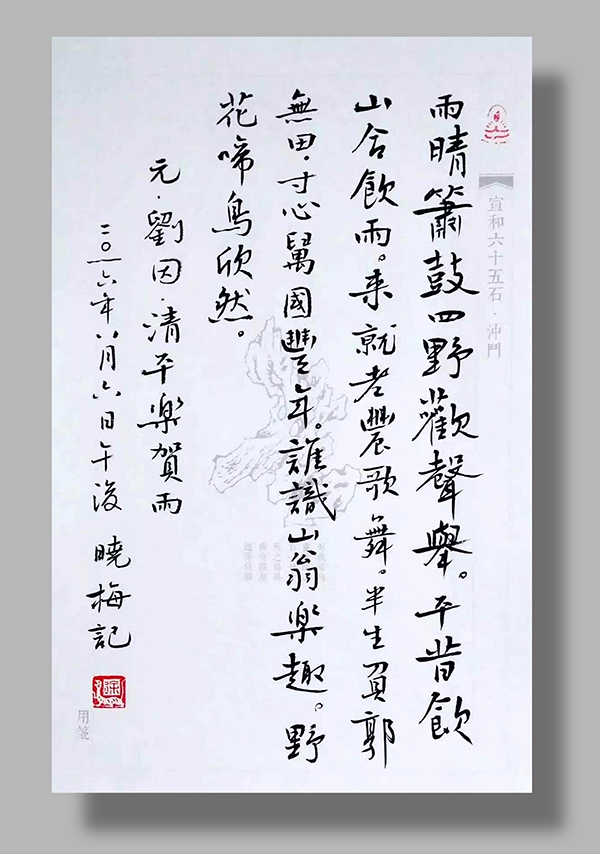 宣和六十五石·沖鬥
雨晴簫鼓四野歡聲舉。平昔飲
山今飲雨。来就老農歌舞。半生負郭
無田，寸心萬國豐年。誰識山翁樂趣。野
花啼鳥欣然。
元·劉因·清平樂賀雨
二〇一六年八月六日午後 曉梅記
用箋